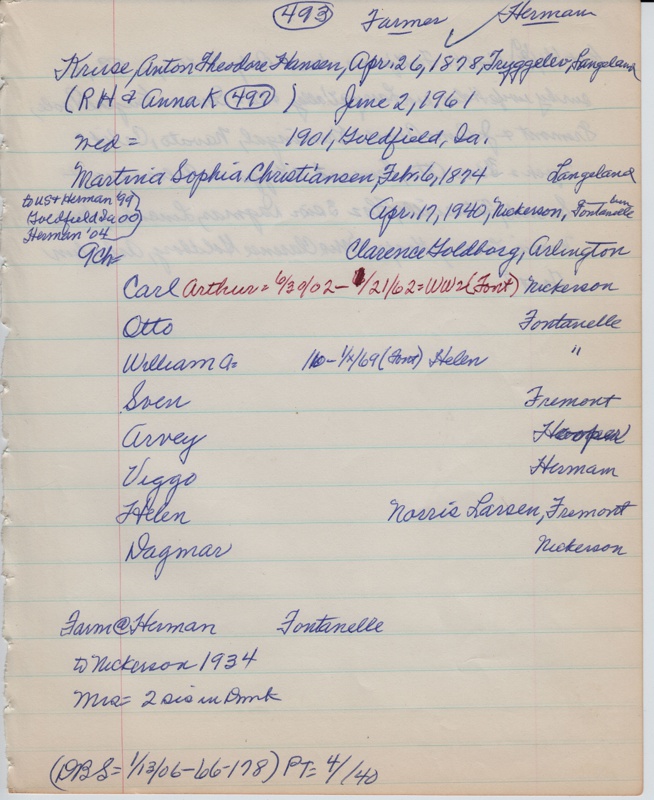 493 Farmer ✓ Herman
Kruse, Anton Theodore Hansen, Apr. 26, 1878, Tryggelev, Langeland
(RH & Anna K 497) June 2, 1961
Wed = 1901, Goldfield, Ia.
Martina Sophia Christiansen, Feb. 6, 1874 Langeland
to US & Herman '99
Apr. 17, 1940, Nickerson, Fontanelle
Goldfield Ia 00
Herman '04
9Ch= Clarence Goldborg, Arlington
Carl Arthur = 6/30/02 - /21/62 = WW2 (Font) Nickerson
Otto Fontanelle
William A= - 1/x/69 (Font) Helen "
Sven Fremont
Arvey Hooper
Viggo Hermam
Helen Norris Larsen, Fremont
Dagmar Nickerson
Farm @ Herman Fontanelle
to Nickerson 1934
Mrs = 2 sis in Dmk
(DBS = 1/13/06-66-178) PT = 4/ /40